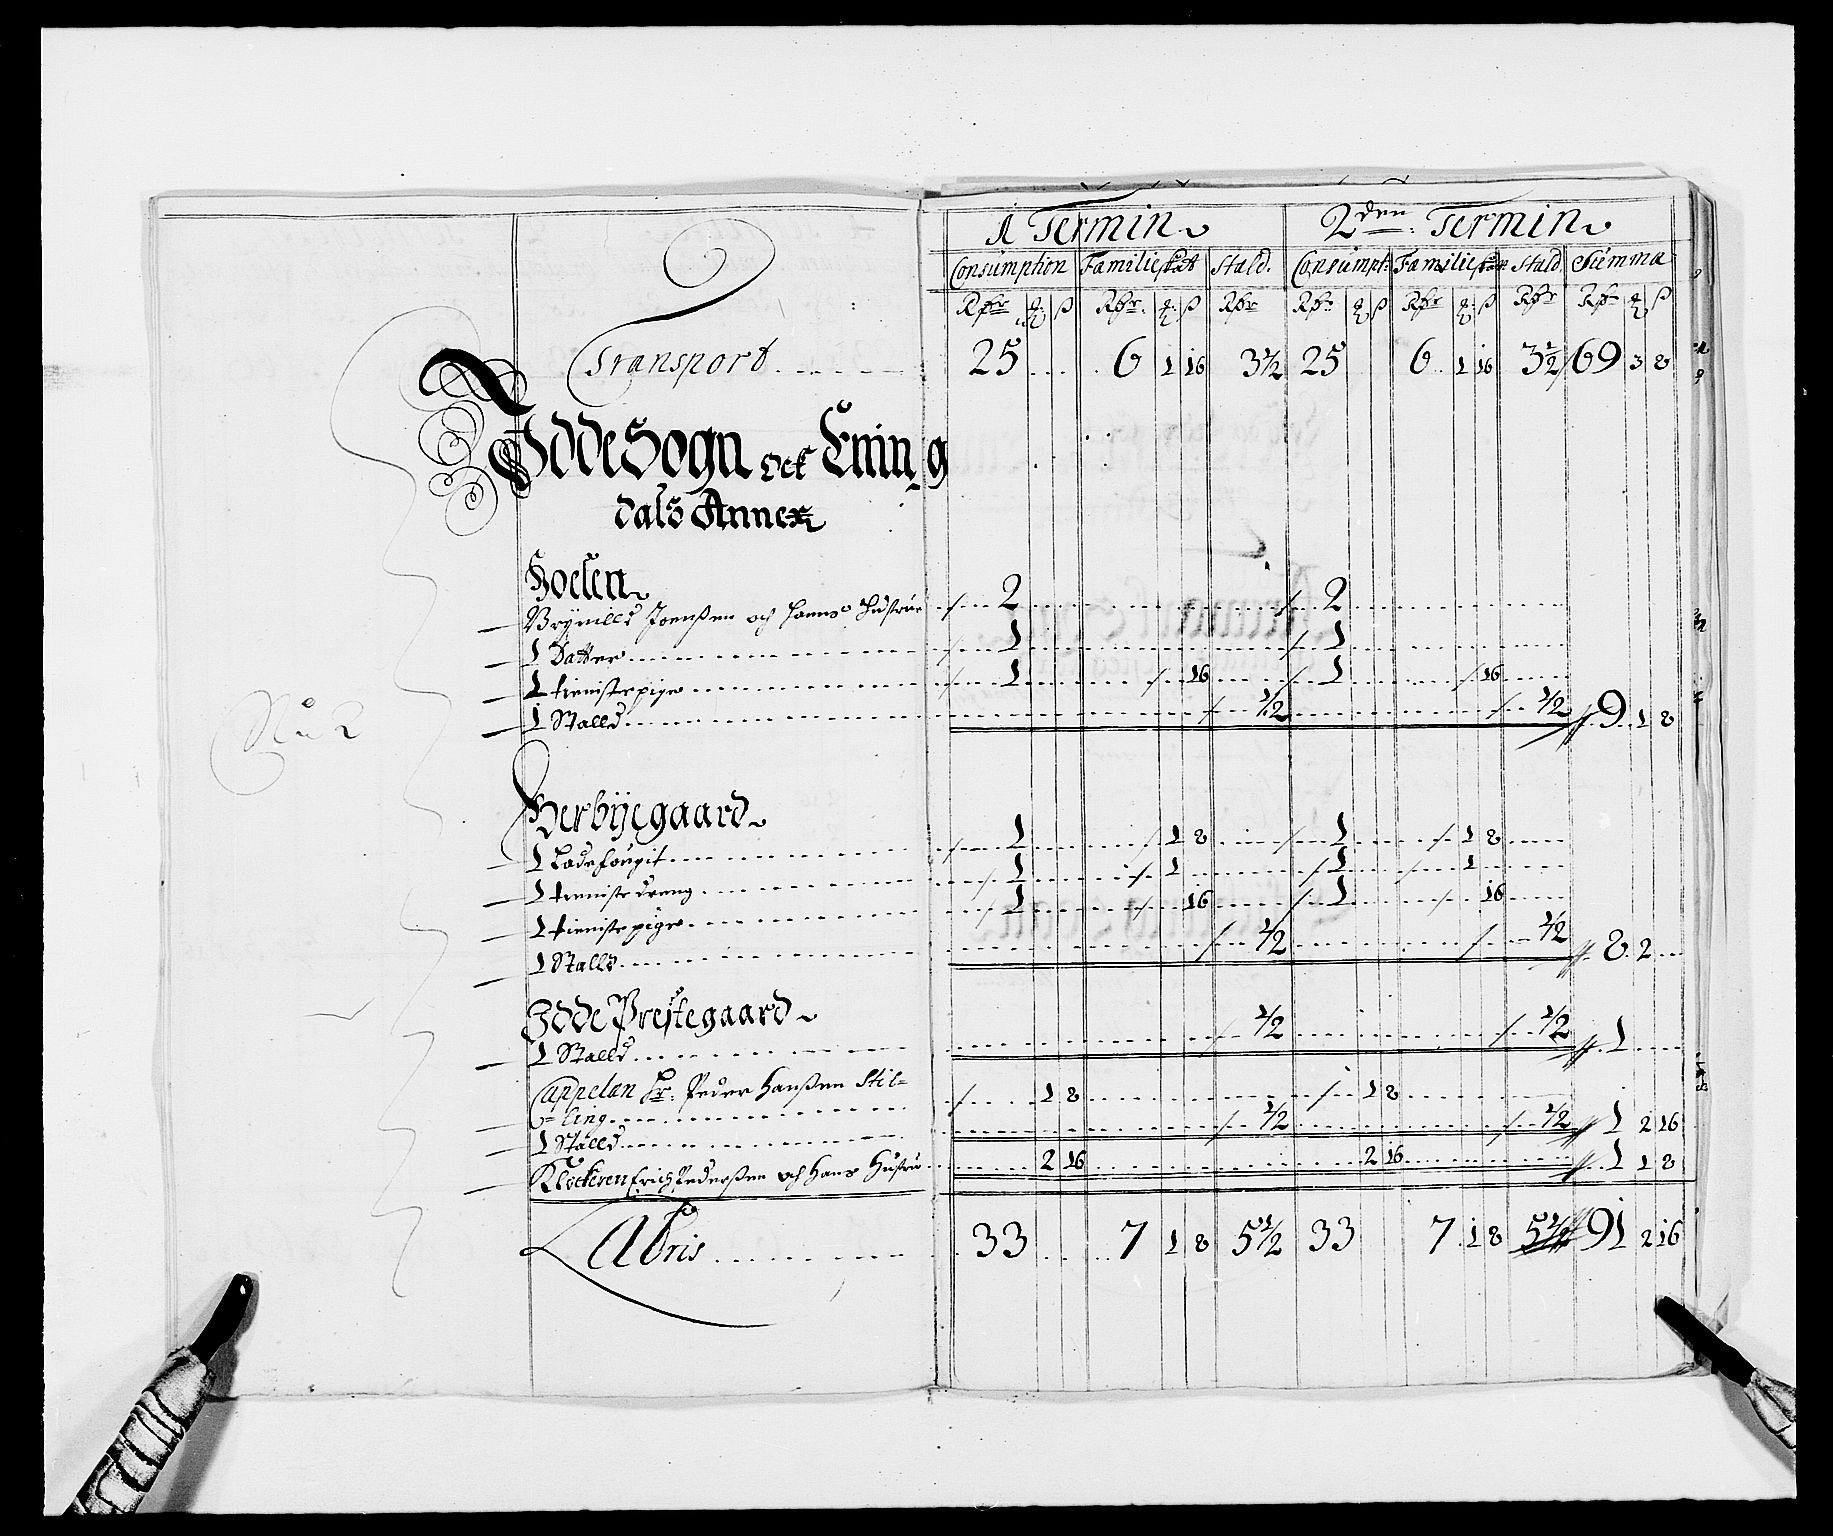 1 Termin 2den: Termin
Consumption Familieskat Stald. Consumpt: Familieskat Stald Summa
Rdr ꝗ ß Rdr ꝗ ß Rdr Rdr ꝗ ß Rdr ꝗ ß Rdr Rdr ꝗ ß
Transport 25 6 1 16 3½ 25 6 1 16 3½ 69 3 8
No 2
Idde Sogn och Ening
dals Annex
Joensen och hans Hustrue 2 2
1 Datter 1 1
1 tieniste pige 1 16 1 16
1 Stalld ½ ½ 9 1 8
Herbÿegaard
1 Ladefougit 1 1 8 1 1 8
1 tieniste dreng 1 1 1 1
1 tieniste pige 1 16 1 16
1 Stalld ½ ½ 8 2
Idde Prestegaard
1 Stalld ½ ½ 1
Cappelan Hr: Peder Hanßen Stil=
=ling 1 8 1 8
1 Stalld ½ ½ 1 2 16
Klockeren Erich Pederßen och hans Hustru 2 16 2 16 1 1 8
Lateris 33 7 1 8 5½ 33 7 1 8 5½ 91 2 16